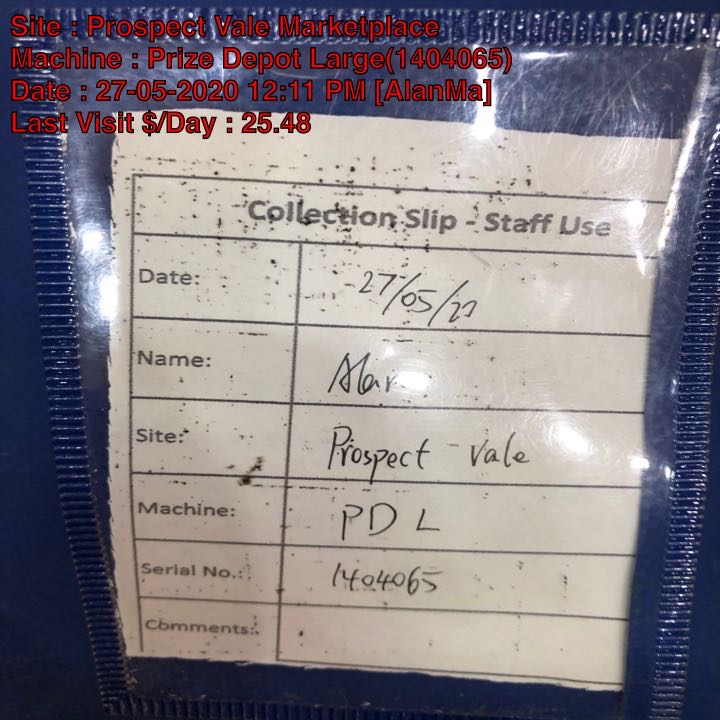 Site : Prospect Vale Marketplace
Machine : Prize Depot Large(1404065)
Date : 27-05-2020 12:11 PM [AlanMa]
Last Visit $/Day : 25.48
Collection Slip - Staff Use
Date:
Name: Alan
Site: Prospect Vale
Machine: PDL
Serial No.: 1404065
Comments: